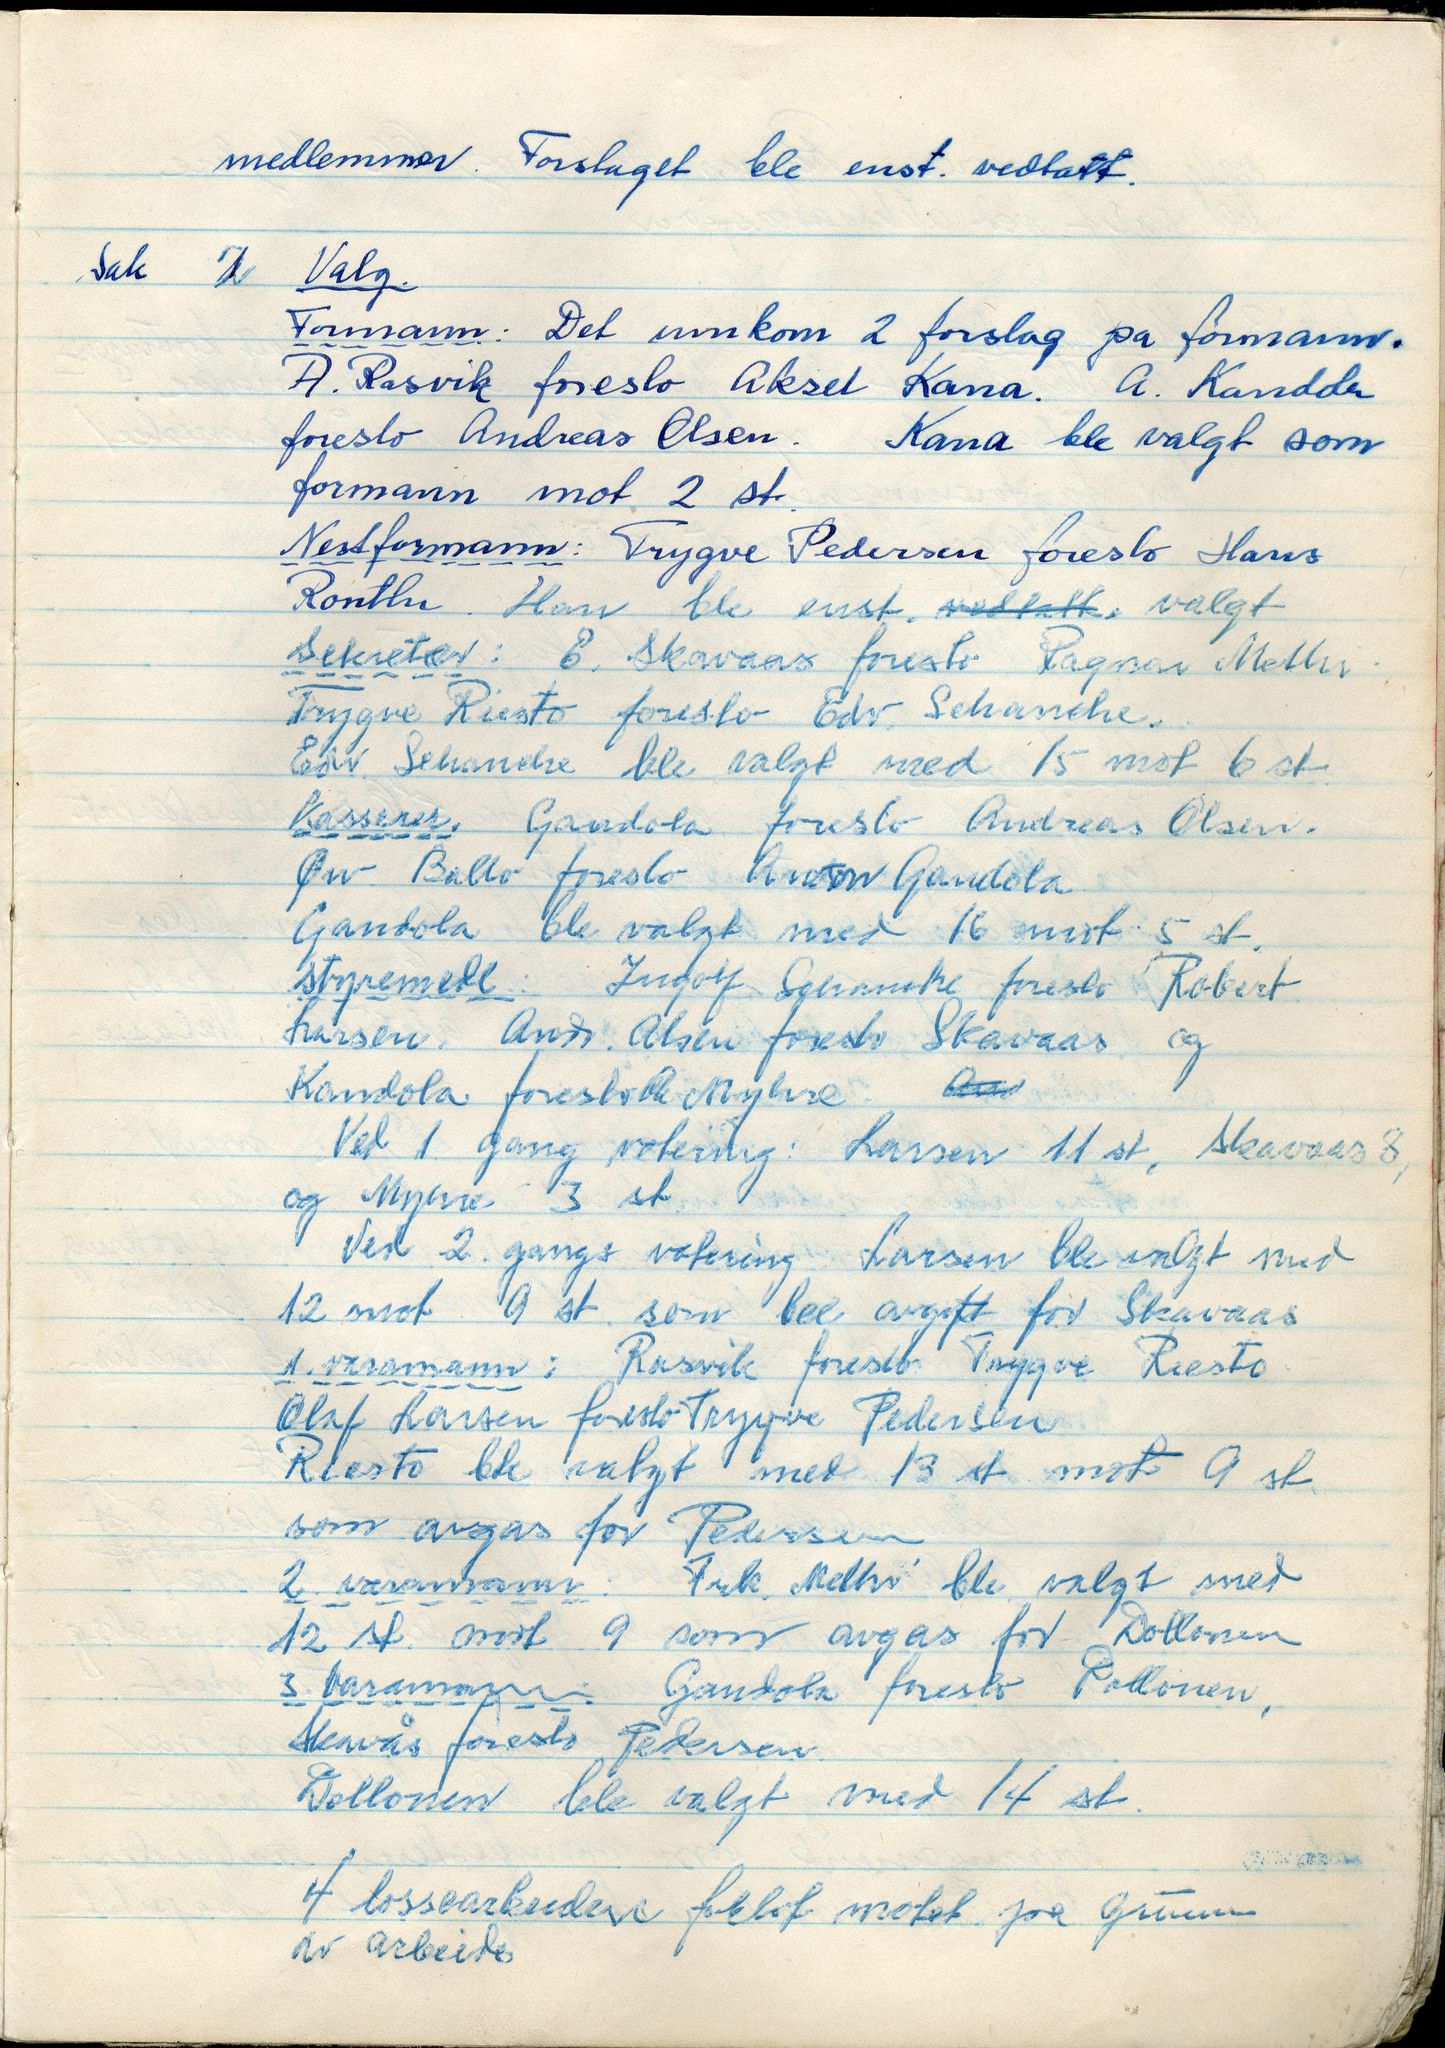 medlemmer. Forslaget ble enst. vedtatt.
Sak 7 Valg.
Formann: Det innkom 2 forslag pa formann.
A. Rasvik foreslo Aksel Kana. A.
foreslo Andreas Olsen. Kana ble valgt som
formann mot 2 st.
Nestformann: Trygve Pedersen foreslo Hans
Han ble enst. vedtatt. valgt
Sekretær: E. Skavaas foreslo Ragnar Methi.
Trygve Riesto foreslo Edv. Schanche.
Edv Schanche ble valgt med 15 mot 6 st.
Kasserer. Gandola foreslo Andreas Olsen.
Øiv Balto foreslo Anton Gandola
Gandola ble valgt med 16 mot 5 st.
Styremedl: Ingolf Schanche foreslo Robert
Larsen. Andr. Olsen foreslo Skavaas og
Kandola foreslo Myhre
Ved 1 gang votering: Larsen 11 st, Skavaas 8,
og Myhre 3 st
Ved 2 gangs votering Larsen ble valgt med
12 mot 9 st som ble avgitt for Skavaas
1. varamann: Rasvik foreslo Trygve Riesto
Olaf Larsen foreslo Trygve Pedersen
Riesto ble valgt med 13 st mot 9 st.
som avgas for Pedersen
2 varamann: Frk. Methi ble valgt med
12 st mot 9 som avgas for Dollonen
3 varamann: Gandola foreslo Dollonen,
Skavås foreslo Pedersen
Dollonen ble valgt med 14 st.
4 lossearbeidere forlot møtet pa grunn
av arbeide